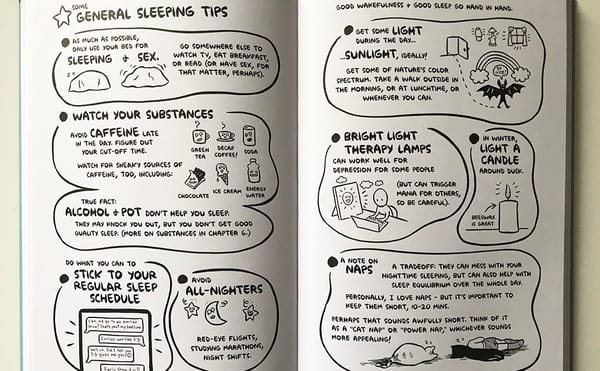 SOME
GENERAL SLEEPING TIPS
AS MUCH AS POSSIBLE,
ONLY USE YOUR BED FOR
SLEEPING + SEX.
GO SOMEWHERE ELSE TO
WATCH TV, EAT BREAKFAST,
OR READ (OR HAVE SEX, FOR
THAT MATTER, PERHAPS).
WATCH YOUR SUBSTANCES
AVOID CAFFEINE LATE
IN THE DAY. FIGURE OUT
YOUR CUT-OFF TIME.
WATCH FOR SNEAKY SOURCES OF
CAFFEINE, TOO, INCLUDING:
GREEN
TEA
DECAF
COFFEE!
SODA
CHOCOLATE
ICE CREAM
ENERGY
WATER
TRUE FACT:
ALCOHOL + POT DON'T HELP YOU SLEEP.
THEY MAY KNOCK YOU OUT, BUT YOU DON'T GET GOOD
QUALITY SLEEP. (MORE ON SUBSTANCES IN CHAPTER 6.)
DO WHAT YOU CAN TO
STICK TO YOUR
REGULAR SLEEP
SCHEDULE
AVOID
ALL-NIGHTERS
RED-EYE FLIGHTS,
STUDYING MARATHONS,
NIGHT SHIFTS.
GOOD WAKEFULNESS + GOOD SLEEP GO HAND IN HAND.
GET SOME LIGHT
DURING THE DAY...
...SUNLIGHT, IDEALLY!
GET SOME OF NATURE'S COLOR
SPECTRUM. TAKE A WALK OUTSIDE
IN THE MORNING, OR AT LUNCHTIME, OR
WHENEVER YOU CAN.
BRIGHT LIGHT
THERAPY LAMPS
CAN WORK WELL FOR
DEPRESSION FOR SOME PEOPLE
(BUT CAN TRIGGER
MANIA FOR OTHERS,
SO BE CAREFUL).
IN WINTER,
LIGHT A
CANDLE
AROUND DUSK.
BEESWAX
IS GREAT
A NOTE ON
NAPS
A TRADEOFF: THEY CAN MESS WITH YOUR
NIGHTTIME SLEEPING, BUT CAN ALSO HELP WITH
SLEEP EQUILIBRIUM OVER THE WHOLE DAY.
PERSONALLY, I LOVE NAPS - BUT IT'S IMPORTANT TO
KEEP THEM SHORT, 10-20 MINS.
PERHAPS THAT SOUNDS AWFULLY SHORT. THINK OF IT
AS A "CAT NAP" OR "POWER NAP," WHICHEVER SOUNDS
MORE APPEALING!